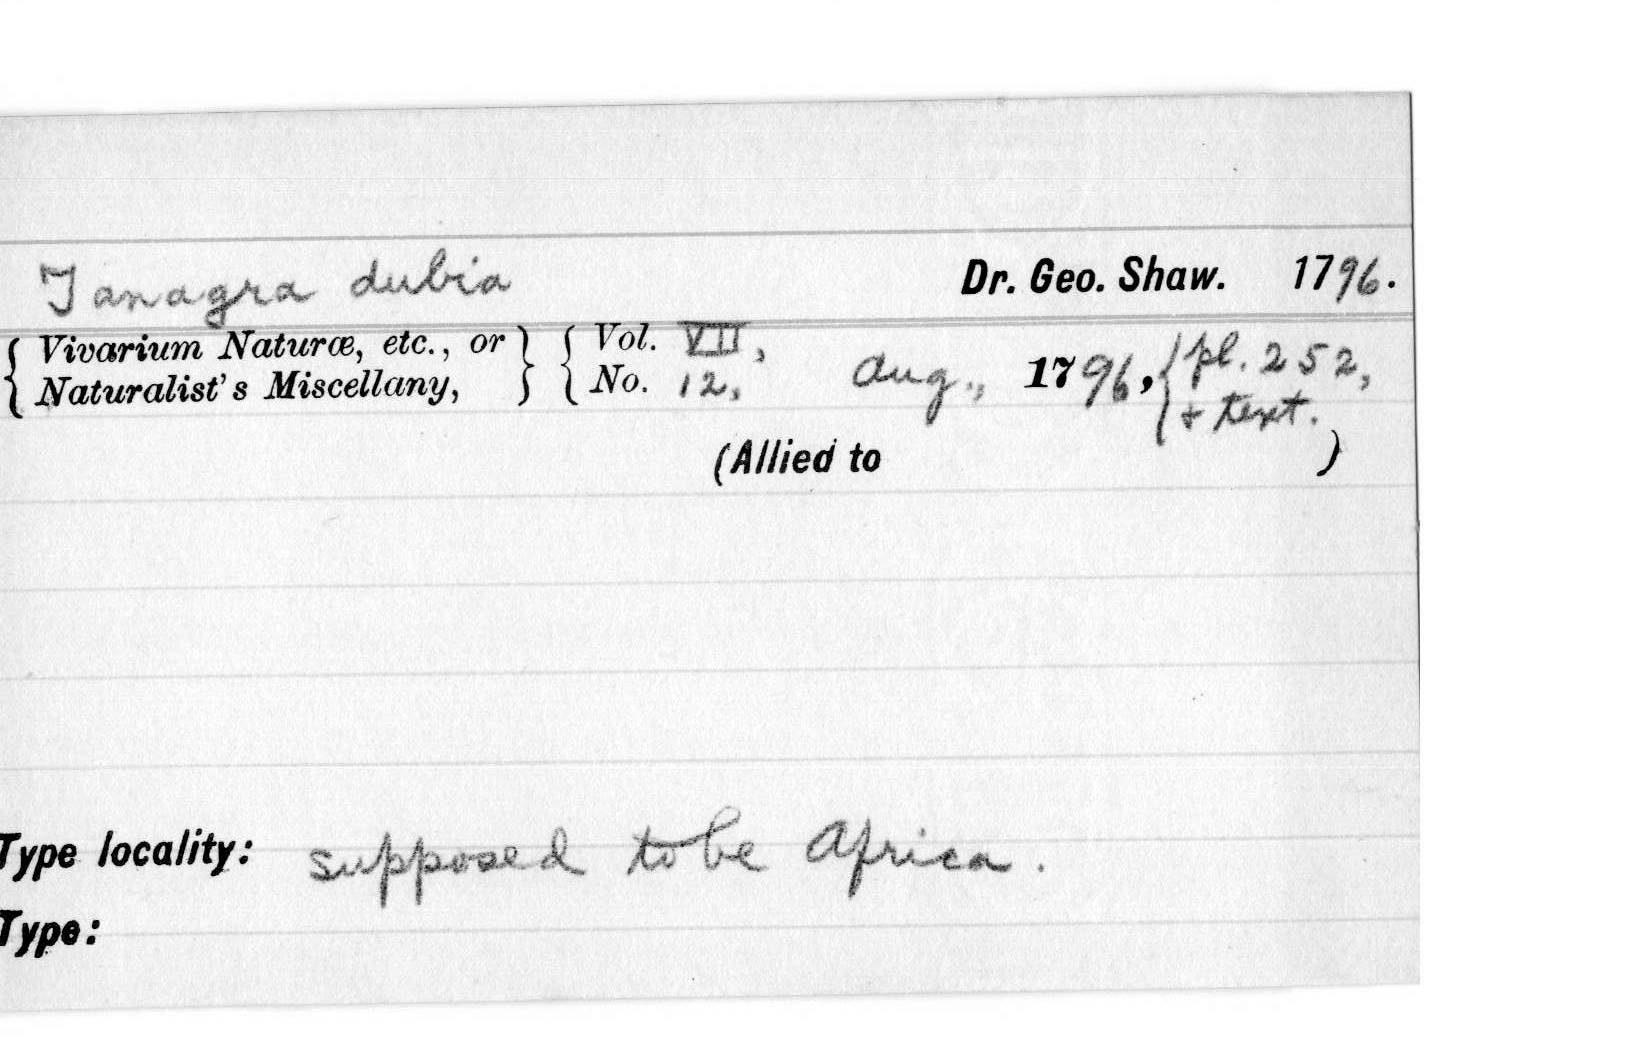 Tanagra dubia Dr. Geo. Shaw. 1796.
{ Vivarium Naturæ, etc., or } { Vol. VII, Aug., 1796, { pl. 252,
{ Naturalist's Miscellany, } { No. 12, { + text.
(Allied to )
Type locality: supposed to be Africa.
Type: